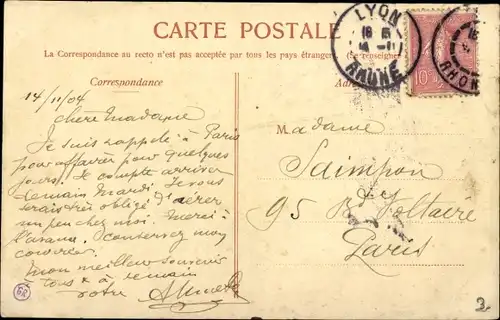 CARTE POSTALE
La Correspondance au recto n'est pas acceptée par tous les pays étrangers. (Se renseigner
Correspondance
LYON
RHONE
10
RHON
14/11/04
chère Madame
Je suis rappelé à Paris
pour affaires pour quelques
jours. Je compte arriver
demain Mardi. Je vous
serais très obligé d'aérer
un peu chez moi. Merci à
l'avance. Conservez mon
courrier.
mon meilleur souvenir
à tous & à demain
votre
Madame
Saimpon
95 Bd Voltaire
Paris
3.